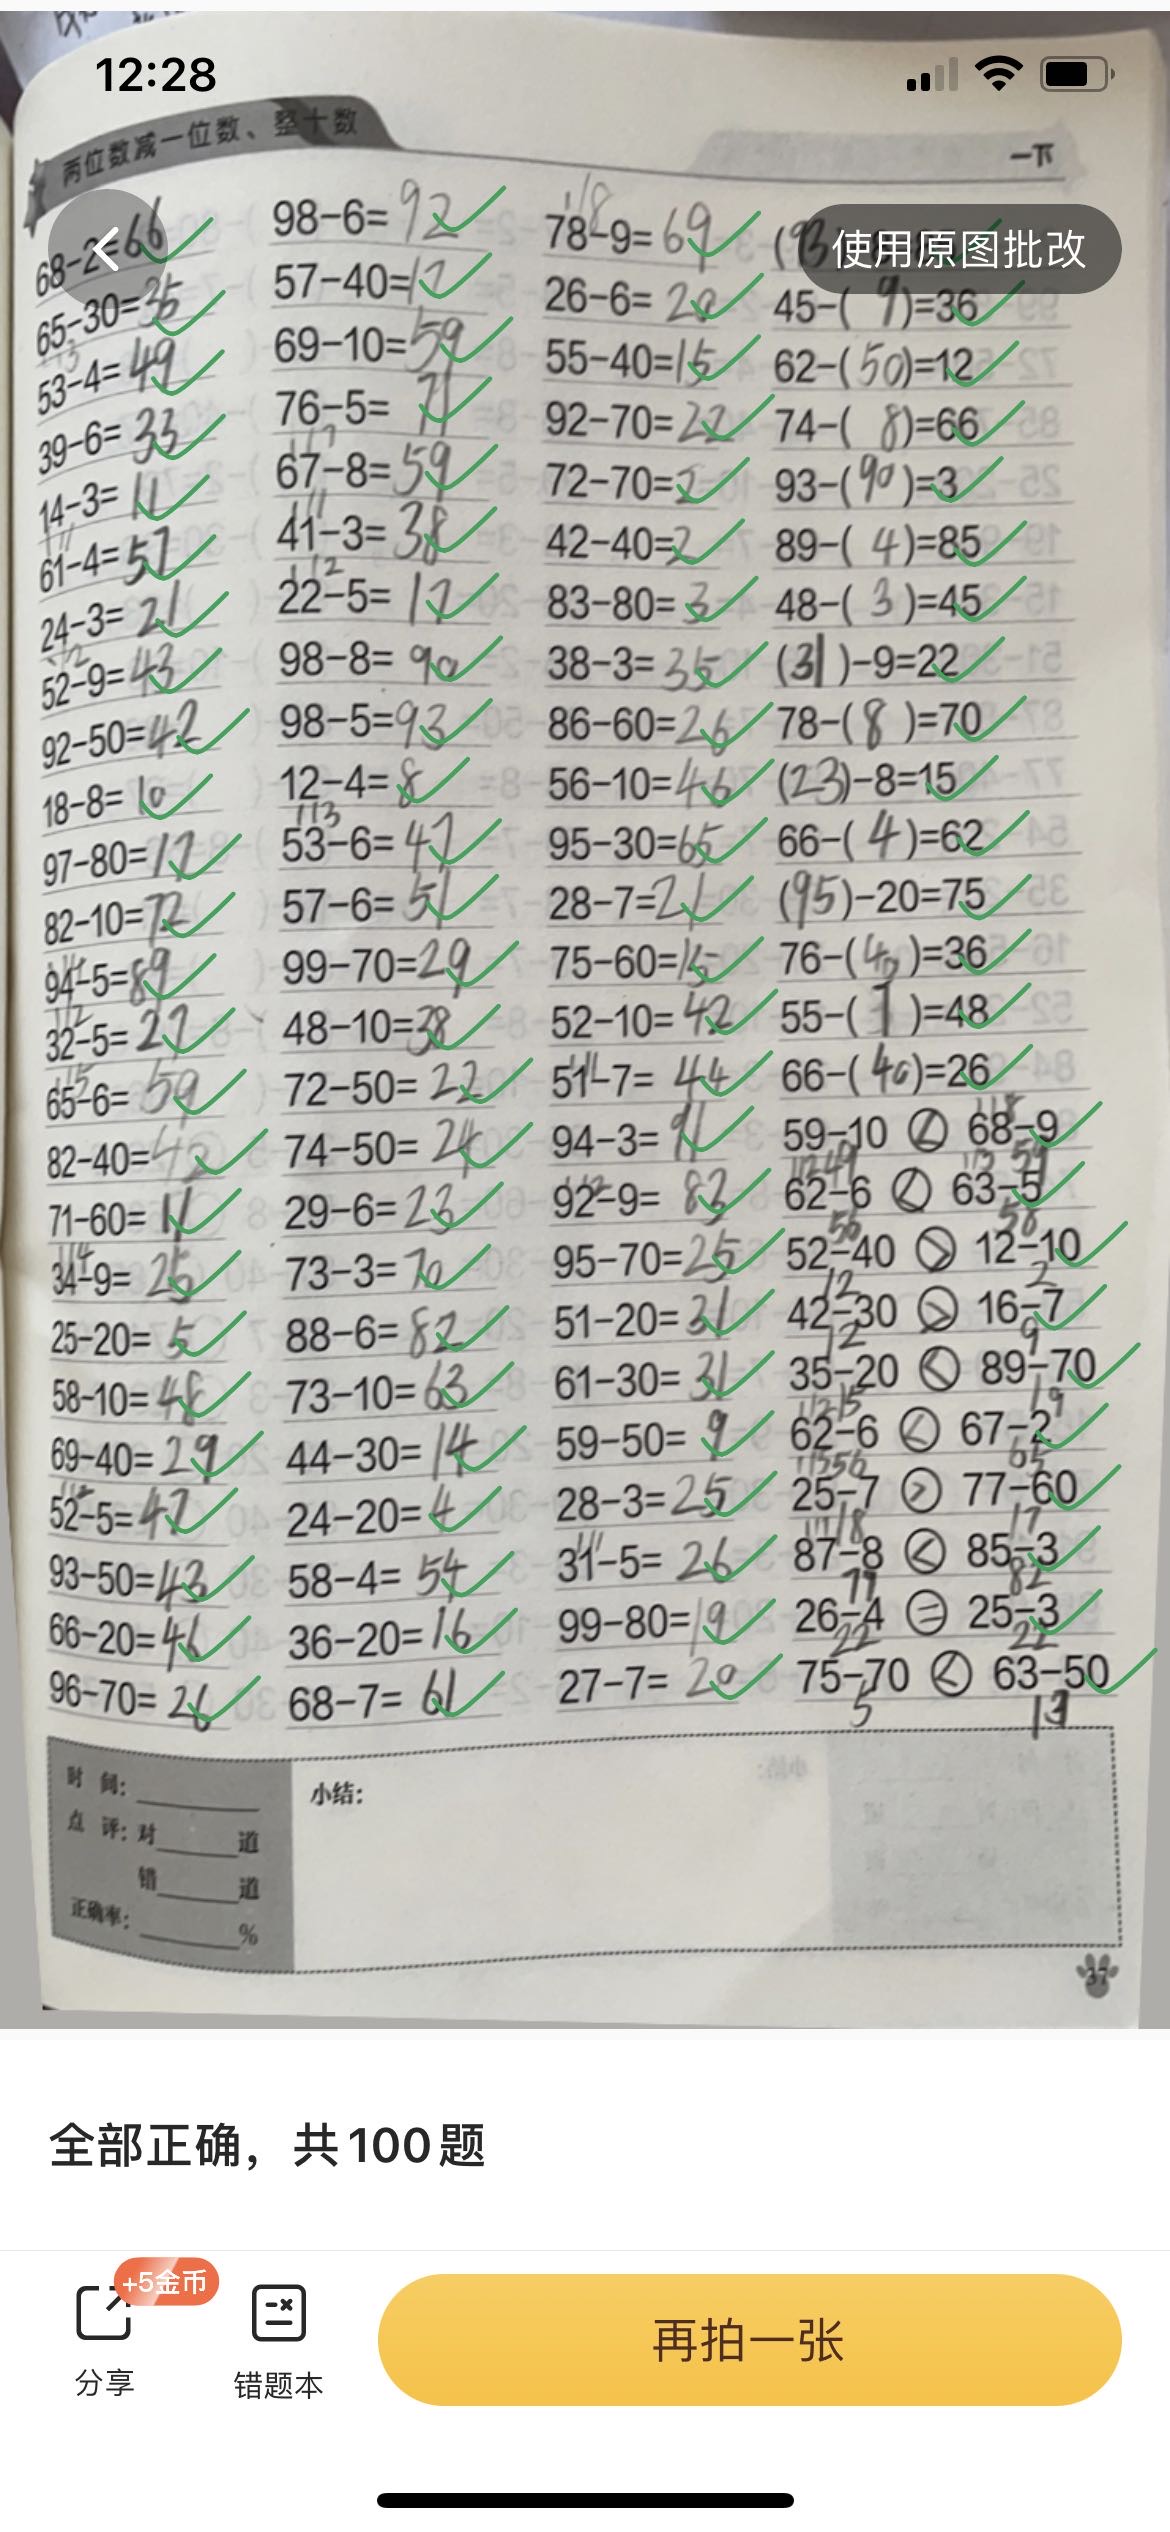 12:28
两位数减一位数、整十数
一下
使用原图批改
68-2=66
65-30=35
53-4=49
39-6=33
14-3=11
61-4=57
24-3=21
52-9=43
92-50=42
18-8=10
97-80=17
82-10=72
94-5=89
32-5=27
65-6=59
82-40=42
71-60=11
34-9=25
25-20=5
58-10=48
69-40=29
52-5=47
93-50=43
66-20=46
96-70=26
98-6=92
57-40=17
69-10=59
76-5=71
67-8=59
41-3=38
22-5=17
98-8=90
98-5=93
12-4=8
53-6=47
57-6=51
99-70=29
48-10=38
72-50=22
74-50=24
29-6=23
73-3=70
88-6=82
73-10=63
44-30=14
24-20=4
58-4=54
36-20=16
68-7=61
78-9=69
26-6=20
55-40=15
92-70=22
72-70=2
42-40=2
83-80=3
38-3=35
86-60=26
56-10=46
95-30=65
28-7=21
75-60=15
52-10=42
51-7=44
94-3=91
92-9=83
95-70=25
51-20=31
61-30=31
59-50=9
28-3=25
31-5=26
99-80=19
27-7=20
45-(9)=36
62-(50)=12
74-(8)=66
93-(90)=3
89-(4)=85
48-(3)=45
(31)-9=22
78-(8)=70
(23)-8=15
66-(4)=62
(95)-20=75
76-(40)=36
55-(7)=48
66-(40)=26
59-10 < 68-9
49 59
62-6 < 63-5
56 58
52-40 > 12-10
12 2
42-30 > 16-7
12 9
35-20 < 89-70
15 19
62-6 < 67-2
56 65
25-7 > 77-60
18 17
87-8 < 85-3
79 82
26-4 = 25-3
22 22
75-70 < 63-50
5 13
时 间:
点 评: 对 道
错 道
正确率: %
小结:
37
全部正确，共100题
+5金币
分享
错题本
再拍一张